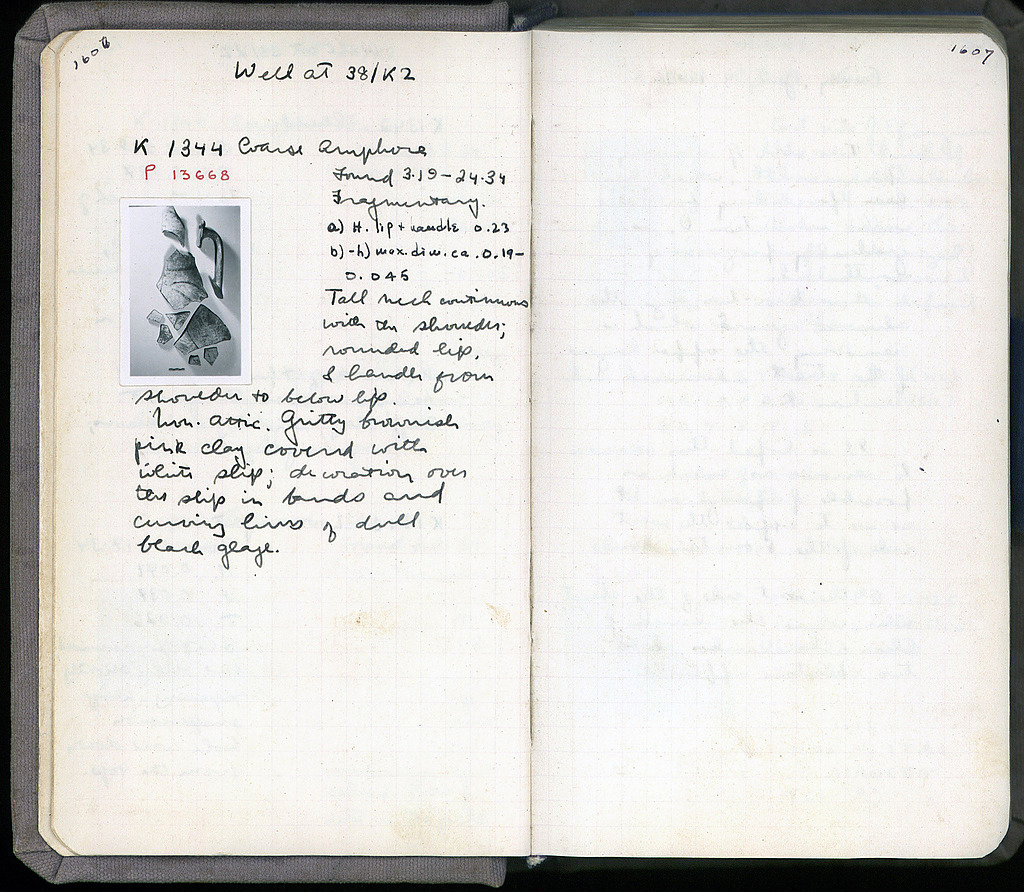 1606
1607
Well at 38/K2
K 1344 Coarse Amphora
P 13668
Found 3.19-24.34
Fragmentary.
a) H. lip + handle 0.23
b)-h) max. dim. ca. 0.19-
0.045
Tall neck continuous
with the shoulder;
rounded lip.
1 handle from
shoulder to below lip.
Non. Attic. Gritty brownish
pink clay covered with
white slip; decoration over
the slip in bands and
curving lines of dull
black glaze.